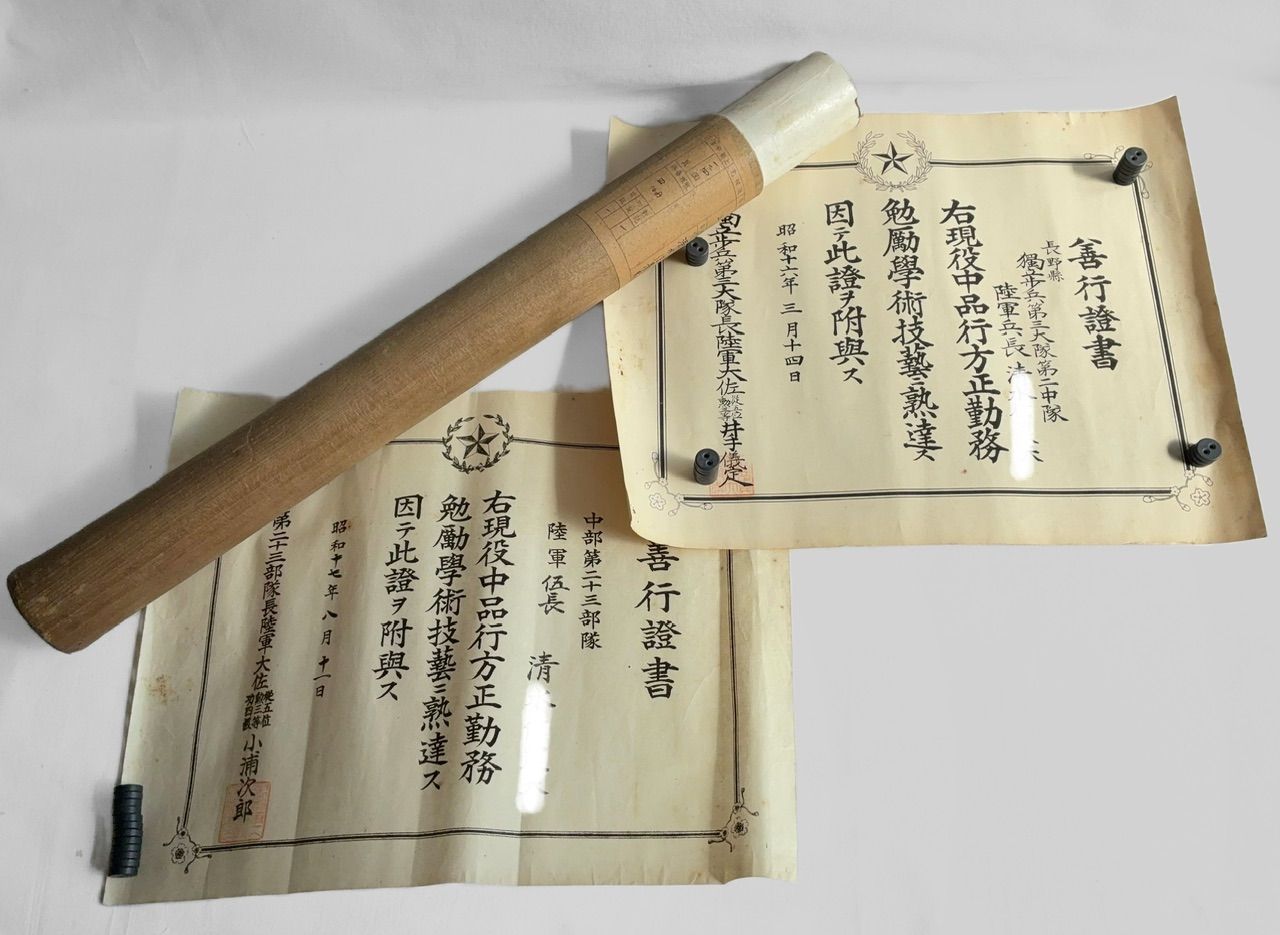 善行證書
長野縣
獨立歩兵第三大隊第二中隊
陸軍兵長
右現役中品行方正勤務
勉勵學術技藝ニ熟達ス
因テ此證ヲ附與ス
昭和十六年三月十四日
獨立歩兵第三大隊長陸軍大佐井手儀定
善行證書
中部第二十三部隊
陸軍伍長 清
右現役中品行方正勤務
勉勵學術技藝ニ熟達ス
因テ此證ヲ附與ス
昭和十七年八月十一日
第二十三部隊長陸軍大佐從五位勳三等功四級小浦次郎